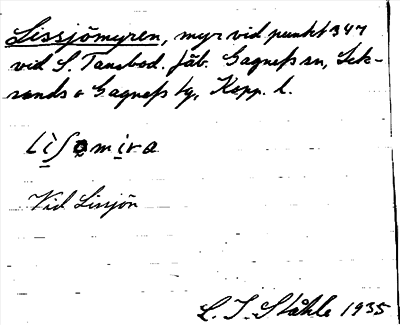 Lissjömyren, myr vid punkt 347
vid S. Tansbod. fäb. Gagnefs sn, Lek-
sands o Gagnefs tg, Kopp. l.
Vid Lissjön
C. I. Ståhle 1935